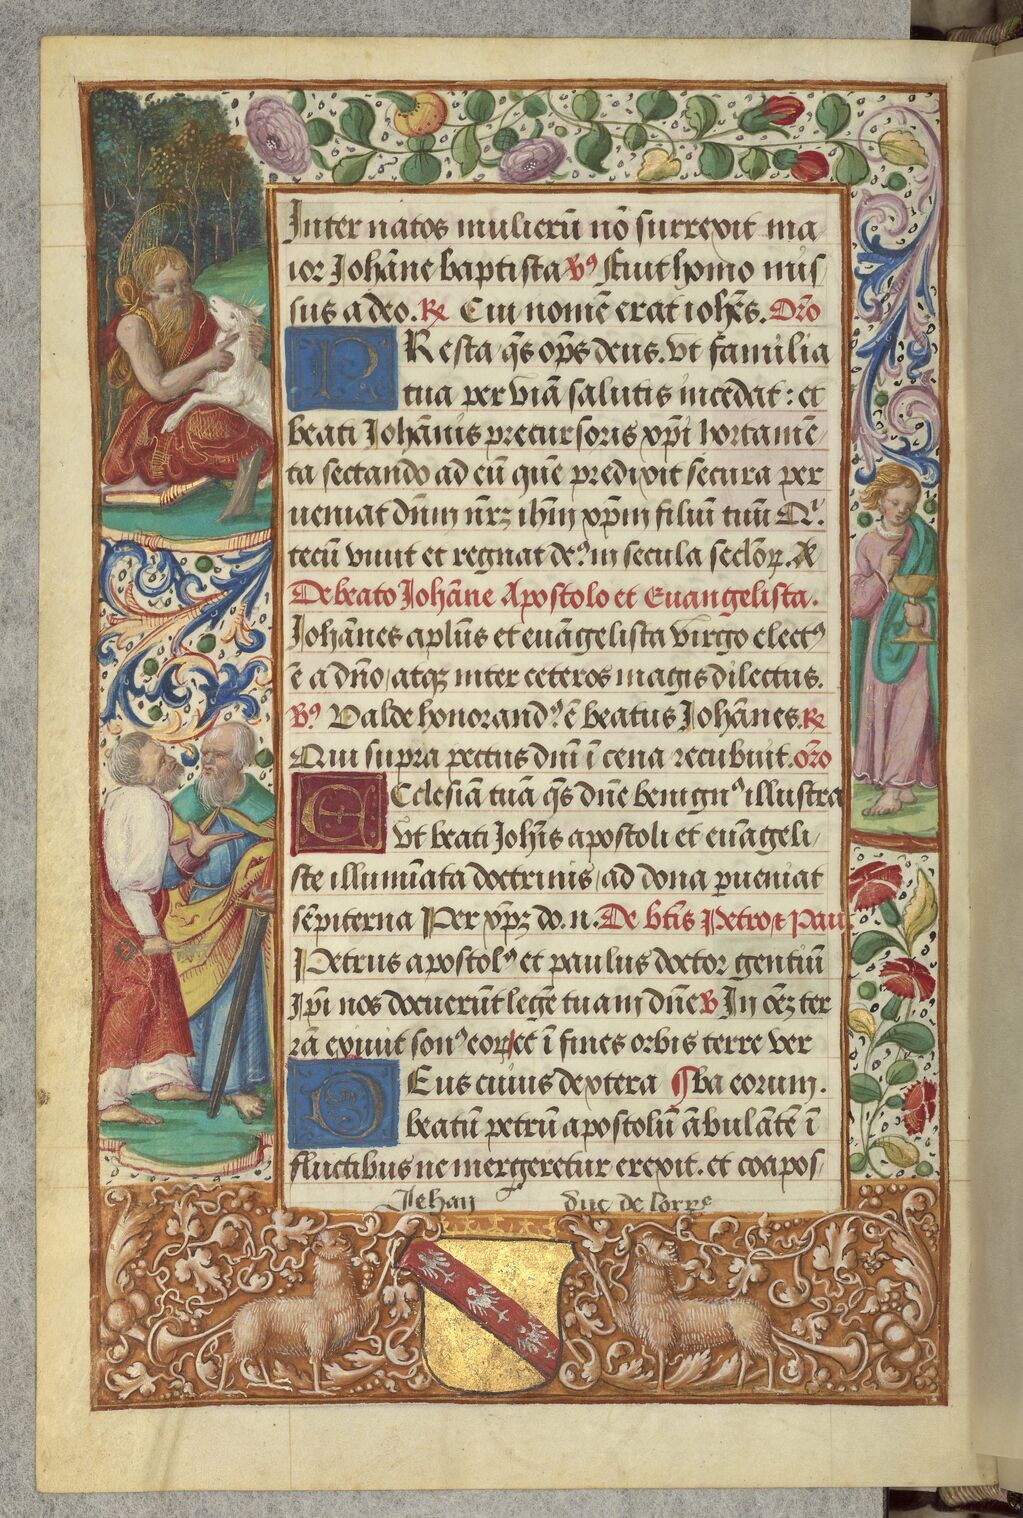 Inter natos mulierū nō surrexit ma
ior Johāne baptista V᷒ Fuit homo mis
sus a deo. R̷ Cui nomē erat iohēs. Orō
PResta q̄s op̄s deus. vt familia
tua per viā salutis incedat : et
beati Johānis precursoris xp̄i hortamē
ta sectando ad eū quē predixit secura per
ueniat dn̄m nr̄ꝫ ihm̄ xp̄m filiū tuū Q'.
tecū viuit et regnat de᷒ in secula seclōꝝ. Ae
De beato Johāne Apostolo et Euangelista.
Johānes aplūs et euāgelista virgo elect᷒
ē a dn̄o / atqꝫ inter ceteros magis dilectus.
V᷒ Valde honorand᷒ ē beatus Johānes. R̷
Qui supra pectus dn̄i ī cena recubuit. orō
ECclesiā tuā q̄s dn̄e benign᷒ illustra
vt beati Joh̄is apostoli et euāgeli
ste illumīata doctrinis / ad dona ꝑueniat
sēpiterna Per xp̄ꝫ do. n. De btīs Petro ⁊ Pau.
Petrus apostol᷒ et paulus doctor gentiū
Ip̄i nos docuerūt legē tuam dn̄e V In oēꝫ ter
rā exiuit son᷒ eoꝝ / et ī fines orbis terre ver
DEus cuius dextera ¶ ba eorum.
beatū petrū apostolū ābulātē ī
fluctibus ne mergeretur erexit. et coapos
Jehan duc de lorrᵉ